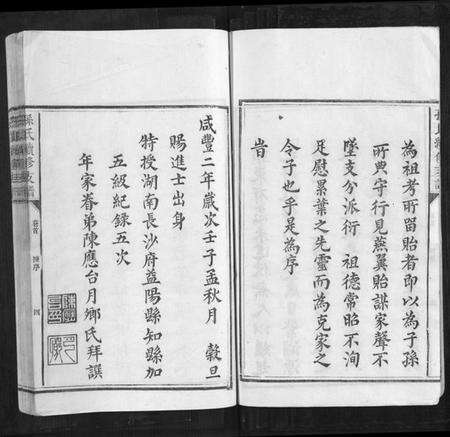 為祖考所留貽者即以為子孫
所與守行見燕翼貽謀家聲不
墜支分派衍 祖德常昭不洵
足慰累葉之先靈而為克家之
令子也乎是為序
旹
咸豐二年歲次壬子孟秋月 穀旦
賜進士出身
特授湖南長沙府益陽縣知縣加
五級紀錄五次
年家眷弟陳應台月鄉氏拜譔
孫氏續修支譜
卷首
陳序
四